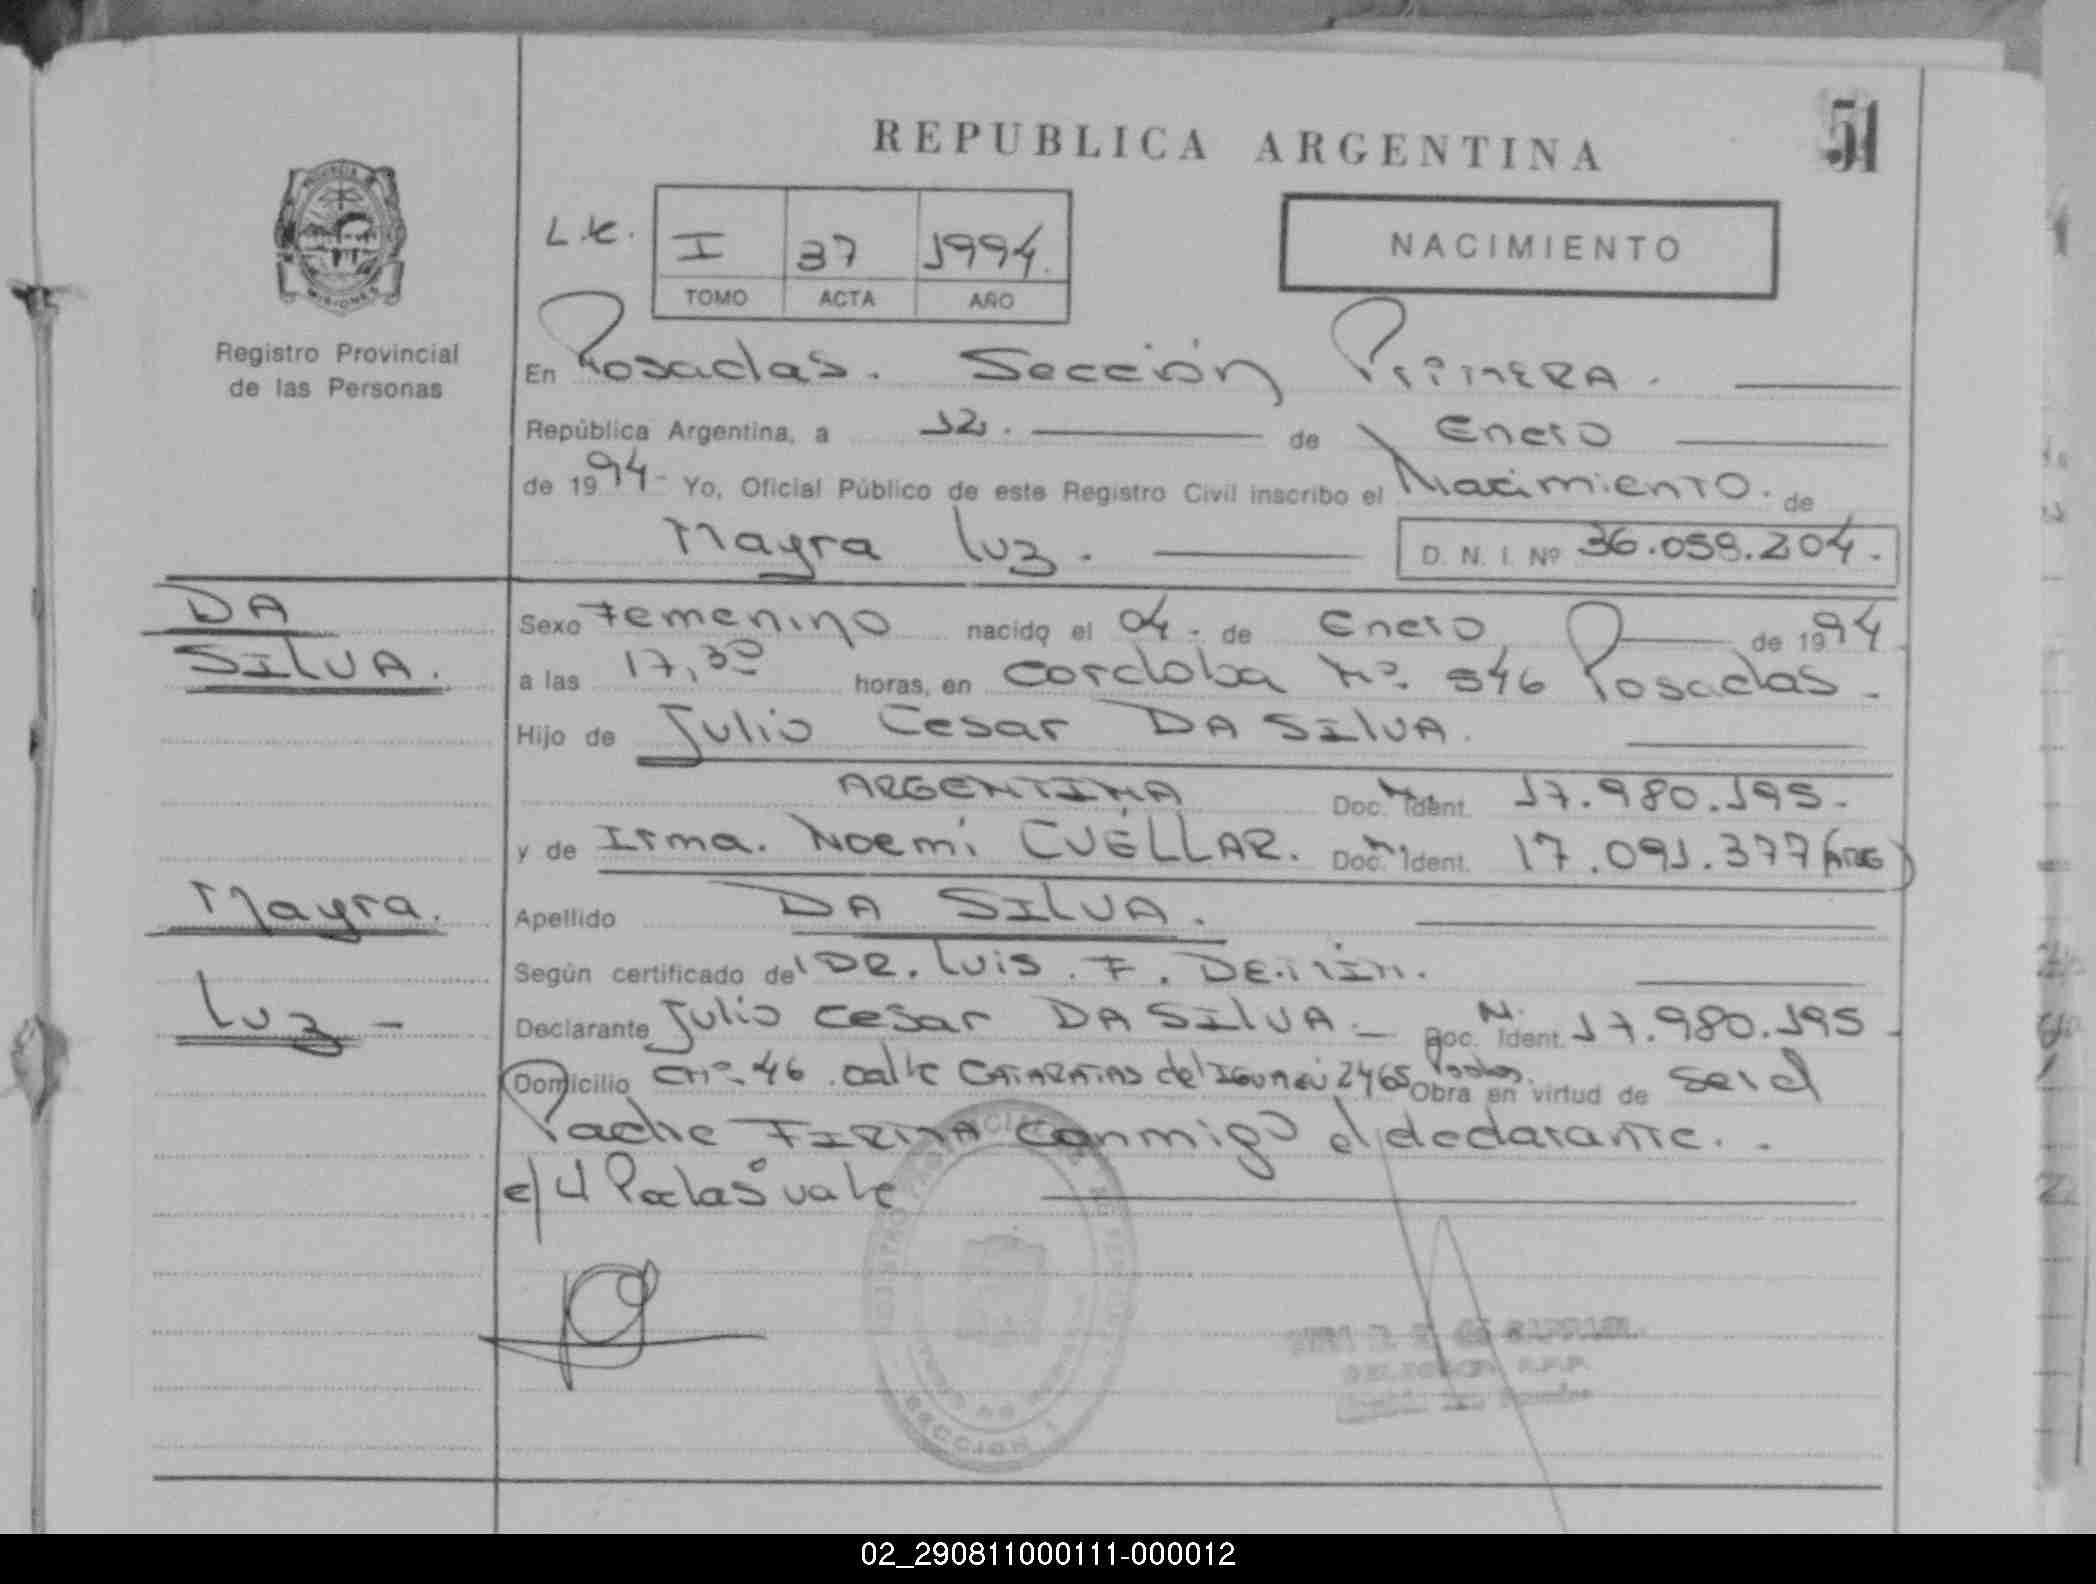 REPUBLICA ARGENTINA
51
PROVINCIA DE
MISIONES
Registro Provincial
de las Personas
L.C.
I 37 1994.
TOMO ACTA AÑO
NACIMIENTO
En Posadas. Sección Primera.
República Argentina, a 12. de Enero
de 1994- Yo, Oficial Público de este Registro Civil inscribo el Nacimiento. de
Mayra Luz. D. N. I. Nº 36.059.204.
DA
SILVA.
Sexo Femenino nacido el 04. de Enero de 1994
a las 17,30 horas, en Cordoba Nº. 546 Posadas.
Hijo de Julio Cesar DA SILVA.
ARGENTINA Doc. Ident. 17.980.195.
y de Irma. Noemí CUÉLLAR. Doc. Ident. 17.091.377 (ARG)
Mayra.
Luz -
Apellido DA SILVA.
Según certificado del DR. Luis. F.
Declarante Julio Cesar DA SILVA. Doc. Ident. 17.980.195
Domicilio CHº. 46. calle CATARATAS del IGUAZÚ 2465 Posadas. Obra en virtud de ser el
Padre FIRMA conmigo el declarante.
e/l Posadas vale
SECCION 1
02_290811000111-000012